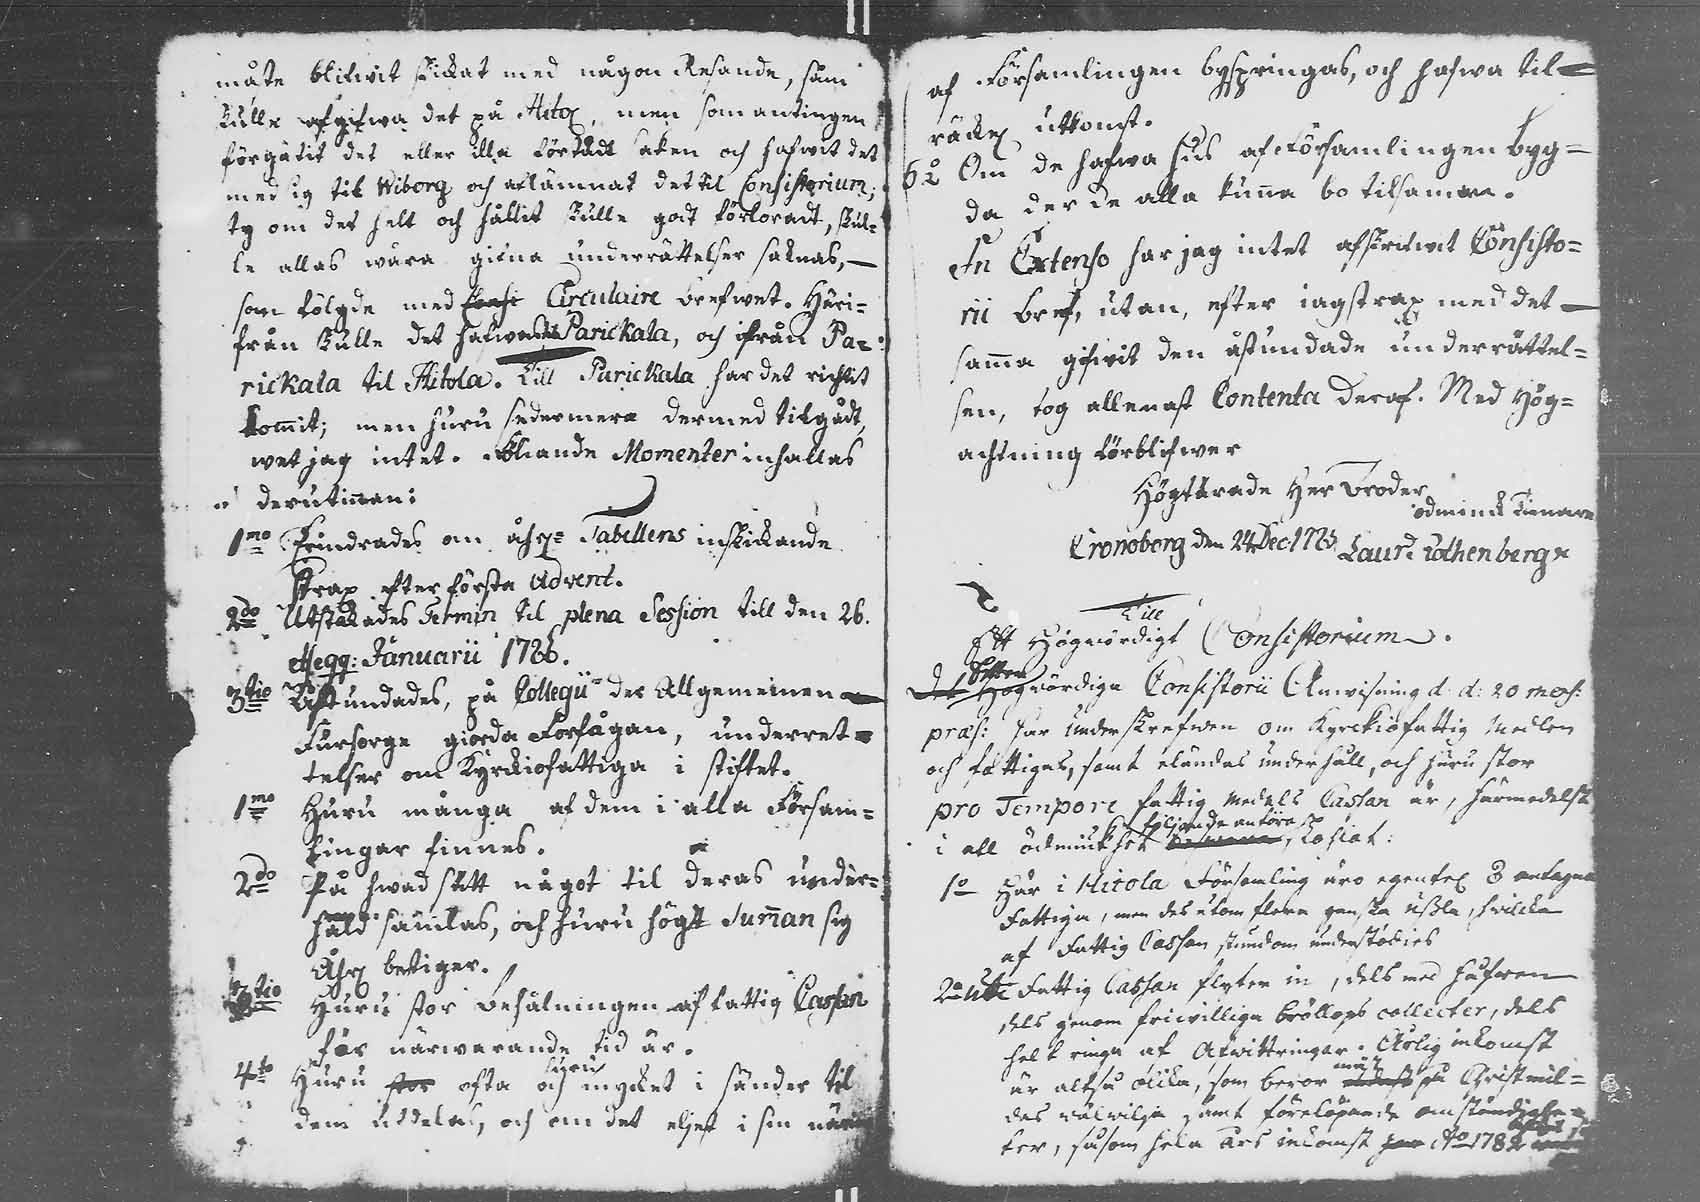 måste blifwit skickat med någon Resande, som
skulle afgifwa det på Hito, men som antingen
förgätit det eller illa förstådt saken och hafwit det
med sig til Wiborg och aflämnat det til Consistorium;
ty om det helt och hållit skulle gådt förloradt, skul-
le allas wåra gifna underrättelser saknas,
som fölgde med Circulaire brefwet. Häri-
från skulle det hafwa Parickala, och ifrån Pa-
rickala til Hitola. Till Parickala har det richtit
kommit; men huru sedermera dermed tilgådt,
wet jag intet. Föliande Momenter inhallas
derutinnan:
1mo Erindrades om åhrs Tabellens inskickande
strax efter första Advent.
2do Utstakades Termin til plena Session till den 26.
et seqq: Januarii 1786.
3tio Åstundades, på Collegii der Allgemeinen
Fürsorge giorda Förfågan, underret-
telser om Kyrckiofattiga i stiftet.
1mo Huru många af dem i alla Försam-
lingar finnes.
2do På hwad sätt något til deras under-
håld samlas, och huru högt Summan sig
Åhrl betiger.
3tio Huru stor behålningen af fattig Cassan
för närwarande tid är.
4to Huru stor ofta och huru mycket i sänder til
dem utdelas, och om det eljest i sin
af Församlingen byspringas, och hafwa til-
räckel utkomst.
6o Om de hafwa hus af Församlingen byg-
da der de alla kunna bo tilsamman.
In Extenso har jag intet afskrifwit Consisto-
rii bref, utan, efter iag strax med det
samma gifwit den åstundade underrättel-
sen, tog allenast Contenta deraf. Med Hög-
achtning förblifwer
Högtärade Her Broder
ödmiuk Tienare
Cronoborg den 24 Dec 1785 Laur: Rothenberg
Till
Ett Högwördigt Consistorium.
Det Efter Högwördiga Consistorii Anwisning d: d: 20 mens:
præs: har Underskrefwen om Kyrckiofattig Medlen
och fattigas, samt eländas underhåll, och huru stor
pro Tempore fattig Medels Cassan är, härmedelst
i all ödmiukhet följande anföra
1o Här i Hitola Församling äro egentel 3 antagna
Fattiga, men des utom flera ganska ussla, hwilcka
af Fattig Cassan stundom understödies
2o Uti Fattig Cassan flyter in, dels med Håfwen
dels genom friwilliga bröllops collecter, dels
helt ringa af Afwittringar. Årlig inkomst
är altså olika, som beror mäst på Christmil-
das wälwilja samt förelöpande omständighe-
ter, såsom hela års inkomst Ao 1782